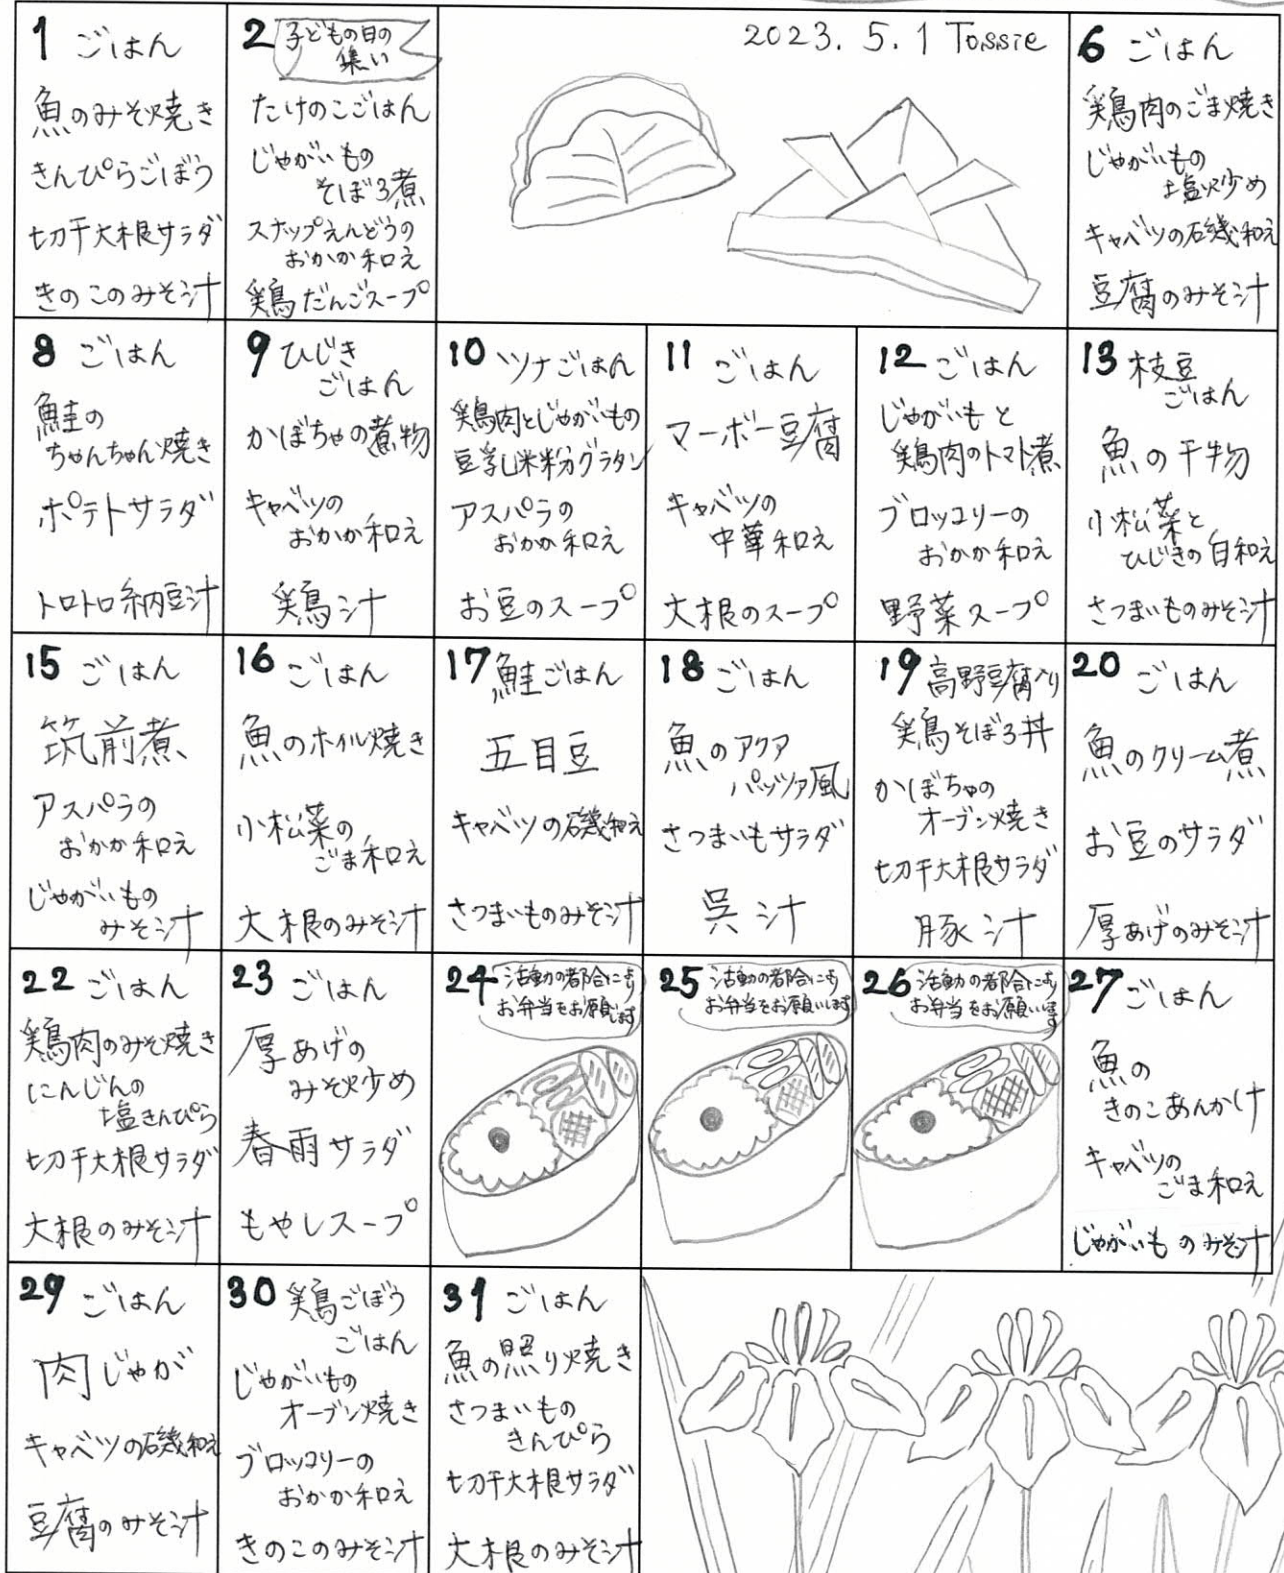 1 ごはん
魚のみそ焼き
きんぴらごぼう
切干大根サラダ
きのこのみそ汁
2 子どもの日の
集い
たけのこごはん
じゃがいもの
そぼろ煮
スナップえんどうの
おかか和え
鶏だんごスープ
2023.5.1 Tossie
6 ごはん
鶏肉のごま焼き
じゃがいもの
塩炒め
キャベツの磯和え
豆腐のみそ汁
8 ごはん
鮭の
ちゃんちゃん焼き
ポテトサラダ
トロトロ納豆汁
9 ひじき
ごはん
かぼちゃの煮物
キャベツの
おかか和え
鶏汁
10 ツナごはん
鶏肉とじゃがいもの
豆乳米粉グラタン
アスパラの
おかか和え
お豆のスープ
11 ごはん
マーボー豆腐
キャベツの
中華和え
大根のスープ
12 ごはん
じゃがいもと
鶏肉のトマト煮
ブロッコリーの
おかか和え
野菜スープ
13 枝豆
ごはん
魚の干物
小松菜と
ひじきの白和え
さつまいものみそ汁
15 ごはん
筑前煮
アスパラの
おかか和え
じゃがいもの
みそ汁
16 ごはん
魚のホイル焼き
小松菜の
ごま和え
大根のみそ汁
17 鮭ごはん
五目豆
キャベツの磯和え
さつまいものみそ汁
18 ごはん
魚のアクア
パッツァ風
さつまいもサラダ
呉汁
19 高野豆腐入り
鶏そぼろ丼
かぼちゃの
オーブン焼き
切干大根サラダ
豚汁
20 ごはん
魚のクリーム煮
お豆のサラダ
厚あげのみそ汁
22 ごはん
鶏肉のみそ焼き
にんじんの
塩きんぴら
切干大根サラダ
大根のみそ汁
23 ごはん
厚あげの
みそ炒め
春雨サラダ
もやしスープ
24 活動の都合により
お弁当をお願いします
25 活動の都合により
お弁当をお願いします
26 活動の都合により
お弁当をお願いします
27 ごはん
魚の
きのこあんかけ
キャベツの
ごま和え
じゃがいものみそ汁
29 ごはん
肉じゃが
キャベツの磯和え
豆腐のみそ汁
30 鶏ごぼう
ごはん
じゃがいもの
オーブン焼き
ブロッコリーの
おかか和え
きのこのみそ汁
31 ごはん
魚の照り焼き
さつまいもの
きんぴら
切干大根サラダ
大根のみそ汁